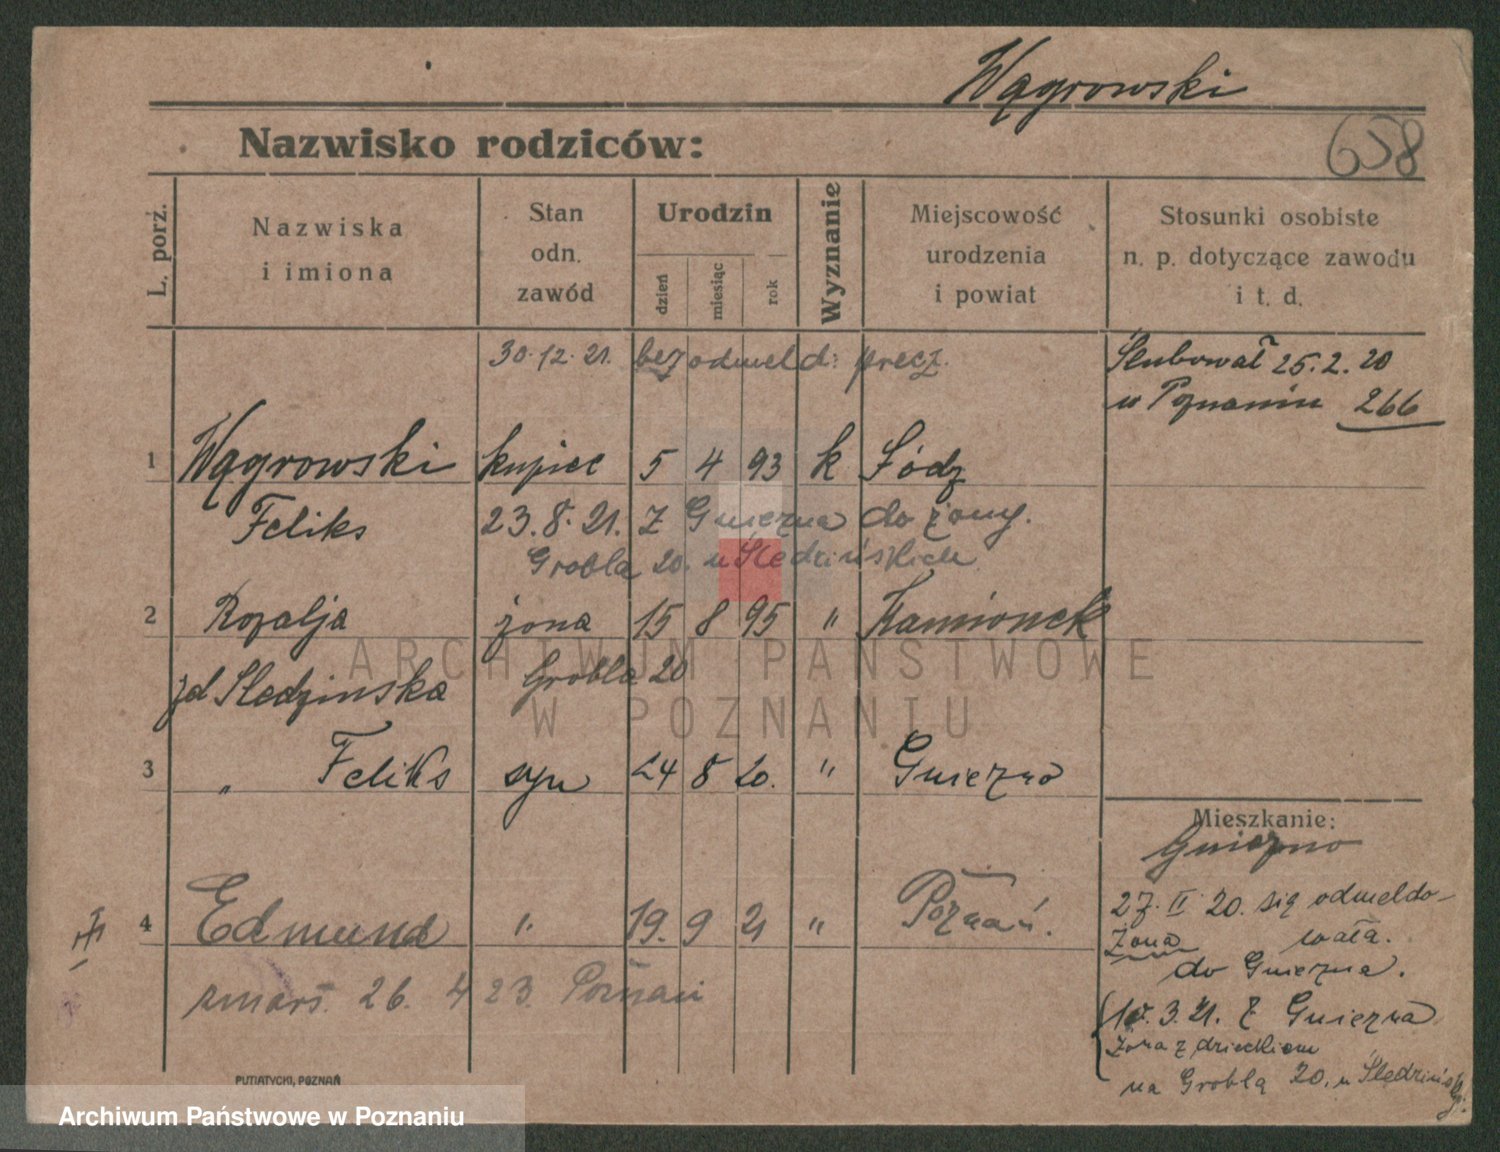 Wągrowski
Nazwisko rodziców:
658
L. porź.
Nazwiska
i imiona
Stan
odn.
zawód
Urodzin
dzień
miesiąc
rok
Wyznanie
Miejscowość
urodzenia
i powiat
Stosunki osobiste
n. p. dotyczące zawodu
i t. d.
30.12.21. bez odmeld: precz.
Ślubował 25.2.20
w Poznaniu 266
1 Wągrowski kupiec 5 4 93 k Łódz
Feliks 23.8.21. z Gniezna do żony.
Grobla 20. u Śledzińskich
2 Rozalja żona 15 8 95 " Kamionek
zd Sledzinska Grobla 20
3 " Feliks syn 24 8 20. " Gniezno
Mieszkanie:
Gniezno
27. II 20. się odmeldo-
Żona wała.
do Gniezna.
4 Edmund ". 19. 9 21 " Poznań.
zmarł. 26. 4 23. Poznań
3.21. z Gniezna
Żona z dzieckiem
na Groblą 20. u Śledzińsk
PUTIATYCKI, POZNAŃ
ARCHIWUM PAŃSTWOWE
W POZNANIU
Archiwum Państwowe w Poznaniu